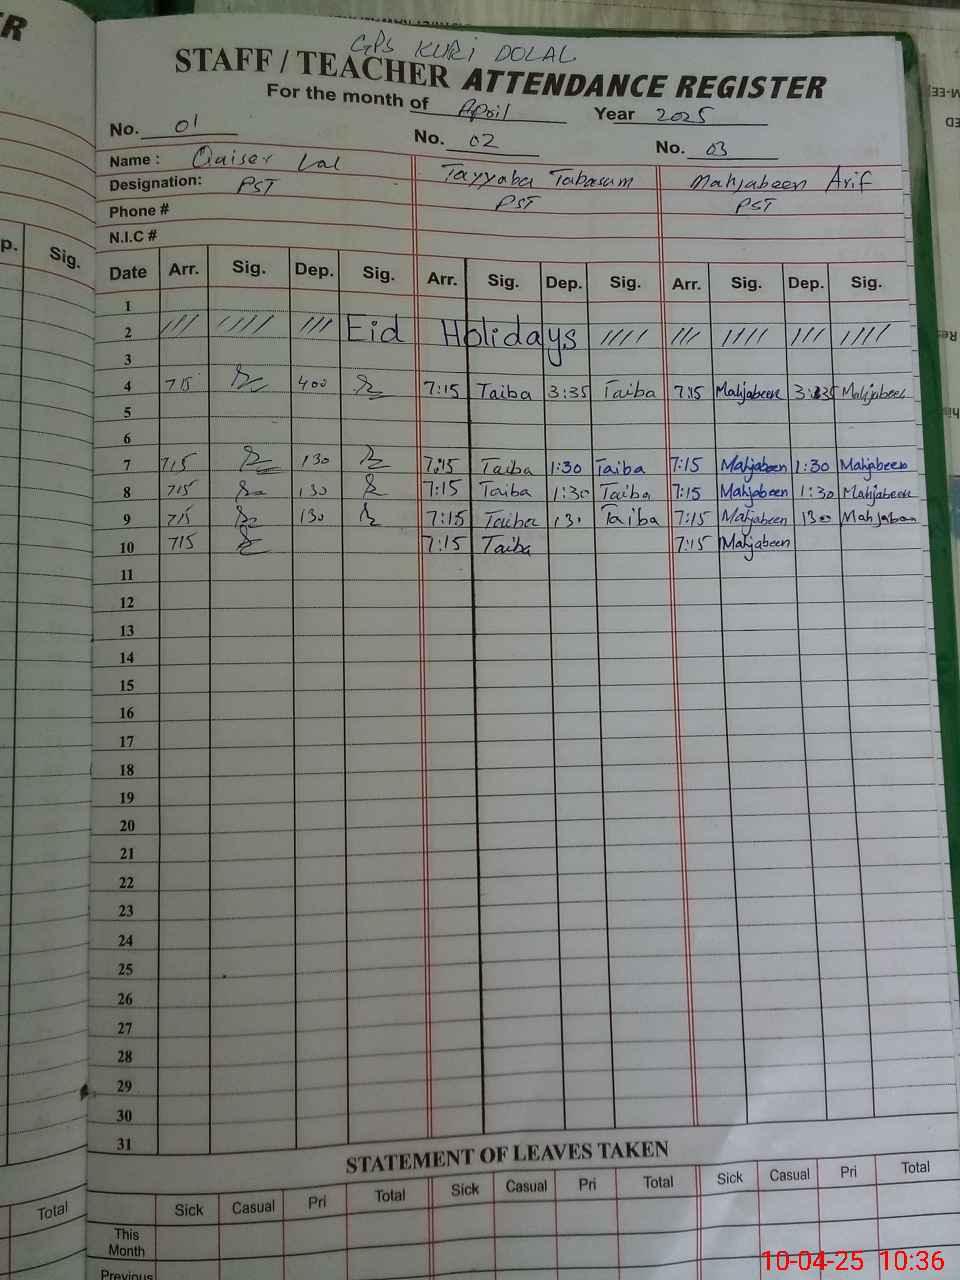 GPS KURI DOLAL
STAFF / TEACHER ATTENDANCE REGISTER
For the month of April Year 2025
No. 01 No. 02 No. 03
Name : Qaiser Lal Tayyaba Tabasum Mahjabeen Arif
Designation: PST PST PST
Phone #
N.I.C #
Date Arr. Sig. Dep. Sig. Arr. Sig. Dep. Sig. Arr. Sig. Dep. Sig.
1
2 Eid Holidays
3
4 715 400 7:15 Taiba 3:35 Taiba 7:15 Mahjabeen 3:35 Mahjabeen
5
6
7 715 130 7:15 Taiba 1:30 Taiba 7:15 Mahjabeen 1:30 Mahjabeen
8 715 130 7:15 Taiba 1:30 Taiba 7:15 Mahjabeen 1:30 Mahjabeen
9 715 130 7:15 Taiba 131 Taiba 7:15 Mahjabeen 130 Mahjabeen
10 715 7:15 Taiba 7:15 Mahjabeen
11
12
13
14
15
16
17
18
19
20
21
22
23
24
25
26
27
28
29
30
31
STATEMENT OF LEAVES TAKEN
Sick Casual Pri Total Sick Casual Pri Total Sick Casual Pri Total
This Month
Previous
p. Sig.
Total
10-04-25 10:36